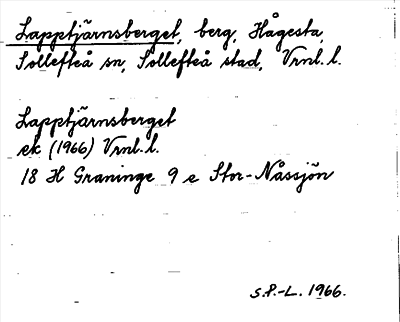 Lapptjärnsberget, berg, Hågesta,
Sollefteå sn, Sollefteå stad, Vrnl. l.
Lapptjärnsberget
ek (1966) Vrnl. l.
18 H Graninge 9 e Stor-Nässjön
S.P.-L. 1966.